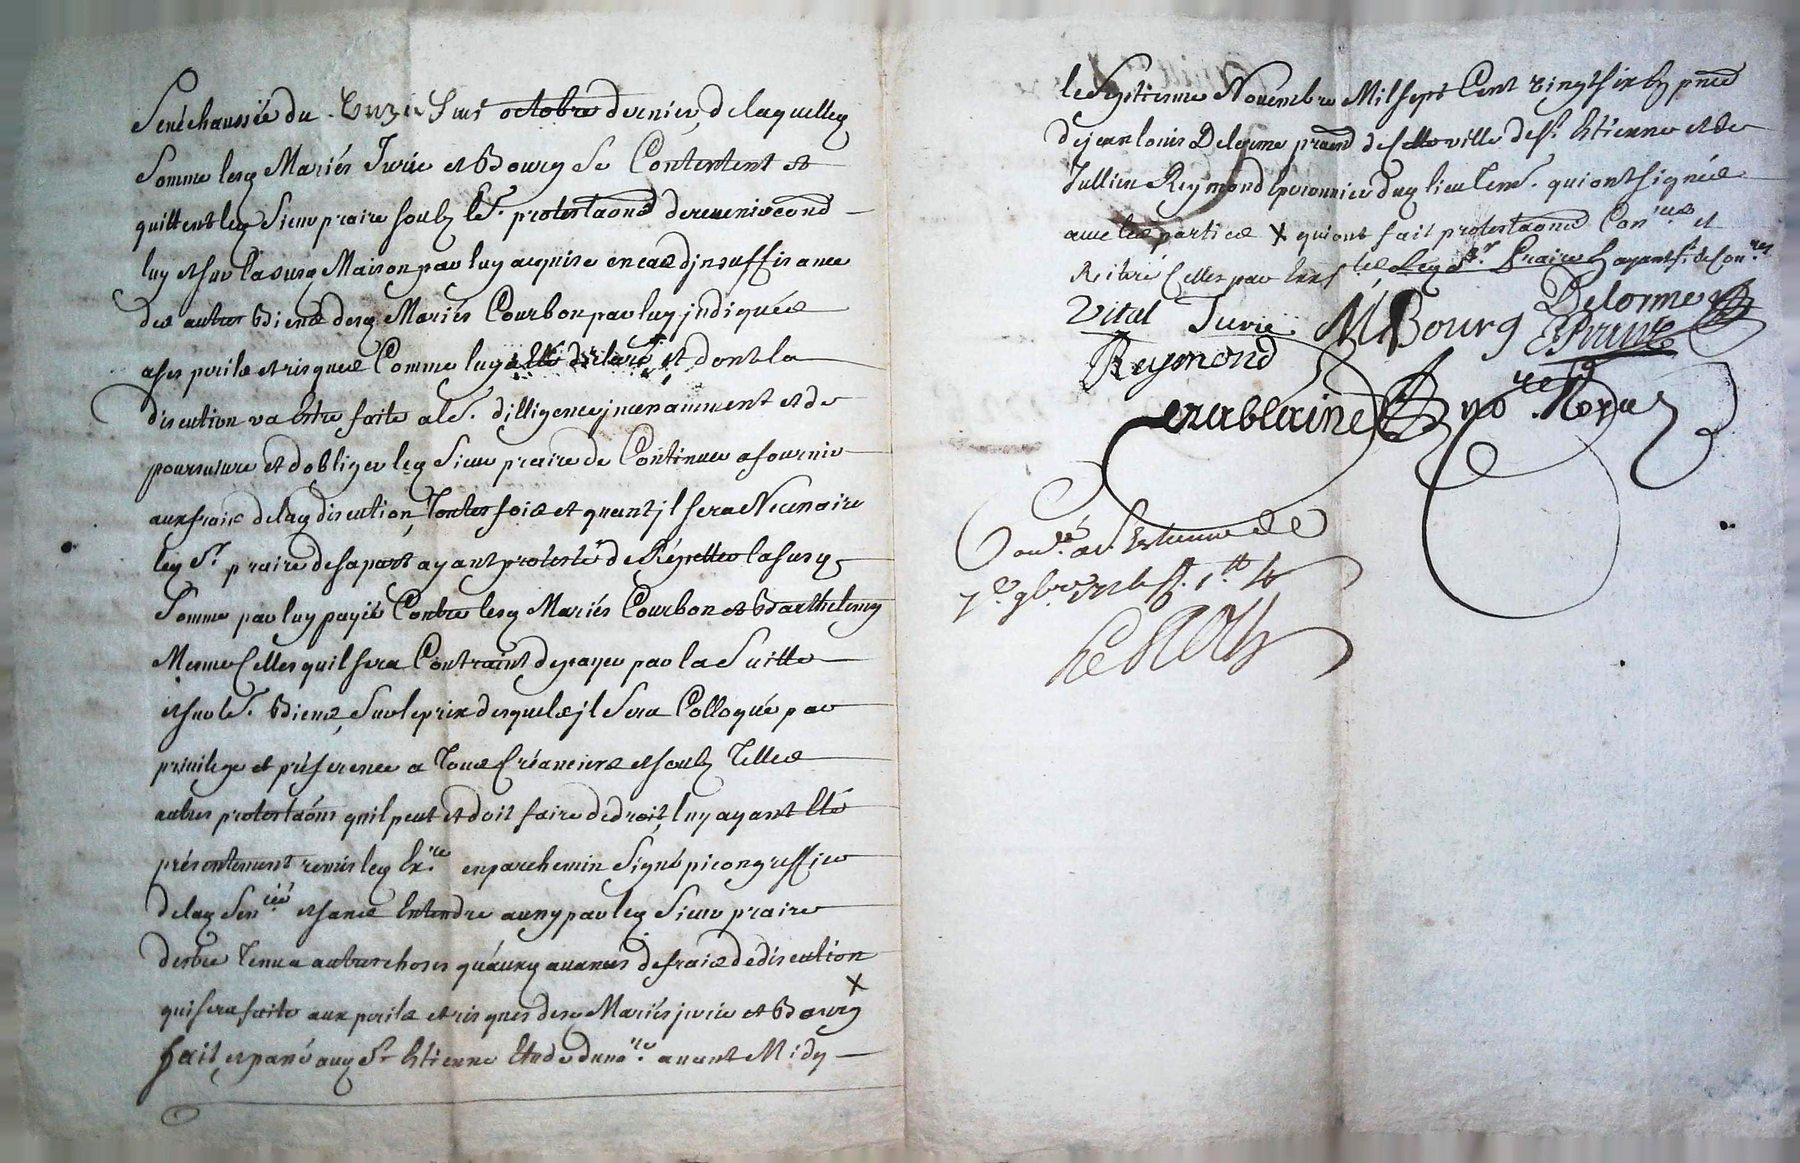 Sénéchaussée du Onze dud. octobre dernier, de laquelle
Somme lesq Mariés Jurie et Bourg Se Contentent et
quittent leq Sieur praire soubz les. protestaons de revenir cond
luy et sur la susq Maison par luy acquise en cas djnsuffisance
des autres Biens desq Mariés Courbon par luy jndiqués
a ses perils et risques Comme luy a Eté déclaré et dont la
discution va Estre faite a les. dilligence jncenamment et de
poursuivre et dobliger leq Sieur praire de Continuer a fournir
aux frais de laq discution, Toutes fois et quant jl sera Nécessaire
leq Sr. praire de sa part ayant protesté de Répetter la susq
Somme par luy payée Contre lesq Mariés Courbon et Barthelemy
Mesme Celles quil sera Contraint de payer par la Suitte
et sur les. Biens, Sur le prix desquels jl Sera Colloqué par
privilege et préférence a Tous Créanciers et soubz Telles
autres protestaons quil peut et doit faire de droit, luy ayant Eté
présentement remis leq Exre. en parchemin Signé picon greffier
de laq Sencée et sans Entendre auny par leq Sieur praire
destre Tenu a autres choses quauxq avances de frais de discution
qui sera faite aux perils et risques desq Mariés jurie et Bourg X
fait et passé auq St Etienne Etude du nore. avant Midy
le Septieme Novembre Mil sept Cent vingt six En pnce
de jean louis Delorme praend de cette ville de St. Etienne et de
Jullien Reymond Eperonnier duq lieu Tems. qui ont signés
avec les parties X qui ont fait protestaons Conres et
Reiteré Celles par Eux ftes Leq Sr. Praire Enquis fs. de Conres
Vital Jurie M Bourg Delorme
Reymond Praire
Chablaine nore Royal
Conlé. a St. Estienne le
7e. 9bre 1726 R. 1 tt 4 s